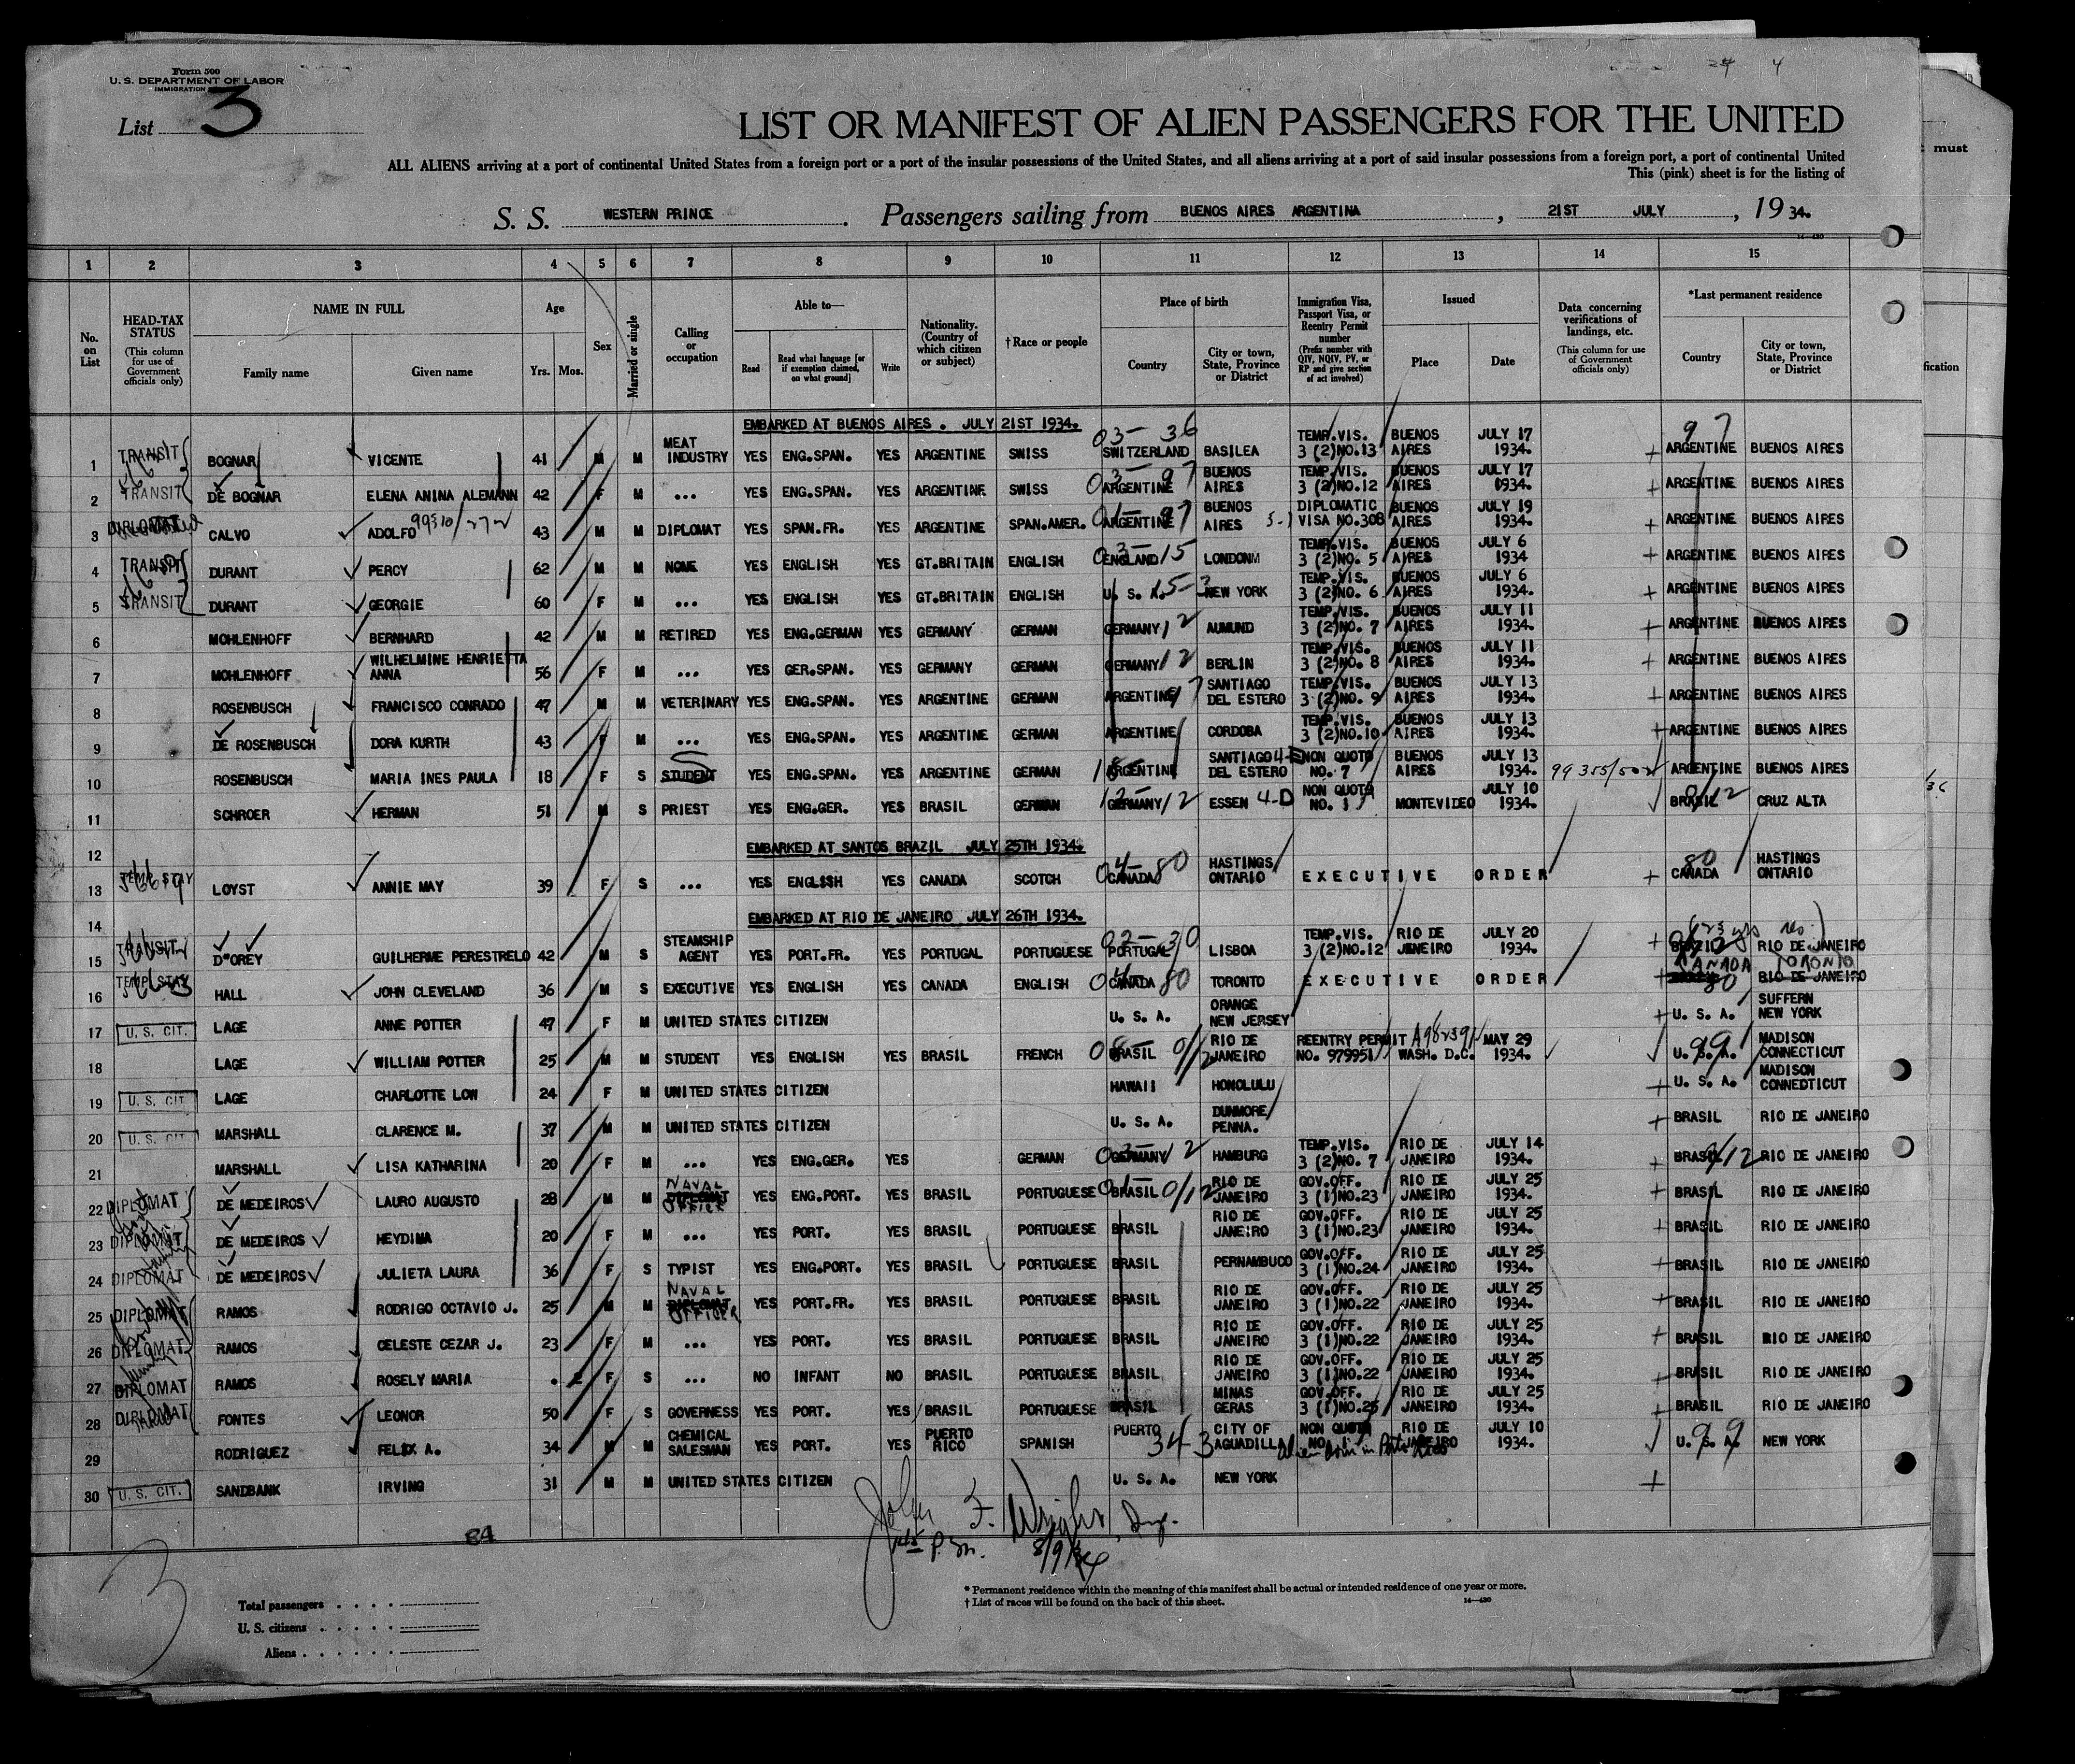 Form 500
U. S. DEPARTMENT OF LABOR
IMMIGRATION
List 3
24 4
LIST OR MANIFEST OF ALIEN PASSENGERS FOR THE UNITED
ALL ALIENS arriving at a port of continental United States from a foreign port or a port of the insular possessions of the United States, and all aliens arriving at a port of said insular possessions from a foreign port, a port of continental United
This (pink) sheet is for the listing of
must
S. S. WESTERN PRINCE. Passengers sailing from BUENOS AIRES ARGENTINA, 21ST JULY, 1934.
14—430
1 2 3 4 5 6 7 8 9 10 11 12 13 14 15
No. on List
HEAD-TAX STATUS (This column for use of Government officials only)
NAME IN FULL Family name Given name
Age Yrs. Mos.
Sex
Married or single
Calling or occupation
Able to— Read Read what language [or if exemption claimed, on what ground] Write
Nationality. (Country of which citizen or subject)
†Race or people
Place of birth Country City or town, State, Province or District
Immigration Visa, Passport Visa, or Reentry Permit number (Prefix number with QIV, NQIV, PV, or RP and give section of act involved)
Issued Place Date
Data concerning verifications of landings, etc. (This column for use of Government officials only)
*Last permanent residence Country City or town, State, Province or District
fication
EMBARKED AT BUENOS AIRES. JULY 21ST 1934.
1 TRANSIT BOGNAR VICENTE 41 M M MEAT INDUSTRY YES ENG.SPAN. YES ARGENTINE SWISS 03— 36 SWITZERLAND BASILEA TEMP.VIS. 3 (2)NO.13 BUENOS AIRES JULY 17 1934. + 97 ARGENTINE BUENOS AIRES
2 TRANSIT DE BOGNAR ELENA ANINA ALEMANN 42 F M ... YES ENG.SPAN. YES ARGENTINE SWISS 03— 97 ARGENTINE BUENOS AIRES TEMP.VIS. 3 (2)NO.12 BUENOS AIRES JULY 17 1934. + ARGENTINE BUENOS AIRES
3 DIPLOMAT CALVO ADOLFO 99510/272 43 M M DIPLOMAT YES SPAN.FR. YES ARGENTINE SPAN.AMER. 01— 97 ARGENTINE BUENOS AIRES 3-1 DIPLOMATIC VISA NO.308 BUENOS AIRES JULY 19 1934. + ARGENTINE BUENOS AIRES
4 TRANSIT DURANT PERCY 62 M M NONE YES ENGLISH YES GT.BRITAIN ENGLISH 03— 15 ENGLAND LONDONM TEMP.VIS. 3 (2)NO. 5 BUENOS AIRES JULY 6 1934 + ARGENTINE BUENOS AIRES
5 TRANSIT DURANT GEORGIE 60 F M ... YES ENGLISH YES GT.BRITAIN ENGLISH U. S. A. 15—3 NEW YORK TEMP.VIS. 3 (2)NO. 6 BUENOS AIRES JULY 6 1934. + ARGENTINE BUENOS AIRES
6 MOHLENHOFF BERNHARD 42 M M RETIRED YES ENG.GERMAN YES GERMANY GERMAN GERMANY 12 AUMUND TEMP.VIS. 3 (2)NO. 7 BUENOS AIRES JULY 11 1934. + ARGENTINE BUENOS AIRES
7 MOHLENHOFF WILHELMINE HENRIETTA ANNA 56 F M ... YES GER.SPAN. YES GERMANY GERMAN GERMANY 12 BERLIN TEMP.VIS. 3 (2)NO. 8 BUENOS AIRES JULY 11 1934. + ARGENTINE BUENOS AIRES
8 ROSENBUSCH FRANCISCO CONRADO 47 M M VETERINARY YES ENG.SPAN. YES ARGENTINE GERMAN ARGENTINE 97 SANTIAGO DEL ESTERO TEMP.VIS. 3 (2)NO. 9 BUENOS AIRES JULY 13 1934. + ARGENTINE BUENOS AIRES
9 DE ROSENBUSCH DORA KURTH 43 F M ... YES ENG.SPAN. YES ARGENTINE GERMAN ARGENTINE CORDOBA TEMP.VIS. 3 (2)NO.10 BUENOS AIRES JULY 13 1934. + ARGENTINE BUENOS AIRES
10 ROSENBUSCH MARIA INES PAULA 18 F S STUDENT YES ENG.SPAN. YES ARGENTINE GERMAN ARGENTINE SANTIAGO DEL ESTERO 4-E NON QUOTA NO. 7 BUENOS AIRES JULY 13 1934. 99355/502 ARGENTINE BUENOS AIRES
11 SCHROER HERMAN 51 M S PRIEST YES ENG.GER. YES BRASIL GERMAN GERMANY 12 ESSEN 4-D NON QUOTA NO. 1 MONTEVIDEO JULY 10 1934. BRASIL 0/12 CRUZ ALTA
12 EMBARKED AT SANTOS BRAZIL JULY 25TH 1934.
13 TEMP. STAY LOYST ANNIE MAY 39 F S ... YES ENGLISH YES CANADA SCOTCH 04— 80 CANADA HASTINGS ONTARIO EXECUTIVE ORDER + 80 CANADA HASTINGS ONTARIO
14 EMBARKED AT RIO DE JANEIRO JULY 26TH 1934.
15 TRANSIT D"OREY GUILHERME PERESTRELO 42 M S STEAMSHIP AGENT YES PORT.FR. YES PORTUGAL PORTUGUESE 02— 30 PORTUGAL LISBOA TEMP.VIS. 3 (2)NO.12 RIO DE JENEIRO JULY 20 1934. + BRAZIL (23 yrs res) RIO DE JANEIRO
16 TEMP. STAY HALL JOHN CLEVELAND 36 M S EXECUTIVE YES ENGLISH YES CANADA ENGLISH 04 80 CANADA TORONTO EXECUTIVE ORDER + CANADA 80 TORONTO RIO DE JANEIRO
17 U. S. CIT. LAGE ANNE POTTER 47 F M UNITED STATES CITIZEN U. S. A. ORANGE NEW JERSEY + U. S. A. SUFFERN NEW YORK
18 LAGE WILLIAM POTTER 25 M M STUDENT YES ENGLISH YES BRASIL FRENCH 08— 0/12 BRASIL RIO DE JANEIRO REENTRY PERMIT A982391 NO. 979951 WASH. D.C. MAY 29 1934. U. S. A. 99 MADISON CONNECTICUT
19 U. S. CIT. LAGE CHARLOTTE LOW 24 F M UNITED STATES CITIZEN HAWAII HONOLULU + U. S. A. MADISON CONNEDTICUT
20 U. S. CIT. MARSHALL CLARENCE M. 37 M M UNITED STATES CITIZEN U. S. A. DUNMORE PENNA. + BRASIL RIO DE JANEIRO
21 MARSHALL LISA KATHARINA 20 F M ... YES ENG.GER. YES GERMAN 03— 12 GERMANY HAMBURG TEMP.VIS. 3 (2)NO. 7 RIO DE JANEIRO JULY 14 1934. + BRASIL 0/12 RIO DE JANEIRO
22 DIPLOMAT DE MEDEIROS LAURO AUGUSTO 28 M M NAVAL DIPLOMAT OFFICER YES ENG.PORT. YES BRASIL PORTUGUESE 01— 0/12 BRASIL RIO DE JANEIRO GOV.OFF. 3 (1)NO.23 RIO DE JANEIRO JULY 25 1934. + BRASIL RIO DE JANEIRO
23 DIPLOMAT DE MEDEIROS HEYDINA 20 F M ... YES PORT. YES BRASIL PORTUGUESE BRASIL RIO DE JANEIRO GOV.OFF. 3 (1)NO.23 RIO DE JANEIRO JULY 25 1934. + BRASIL RIO DE JANEIRO
24 DIPLOMAT DE MEDEIROS JULIETA LAURA 36 F S TYPIST YES ENG.PORT. YES BRASIL PORTUGUESE BRASIL PERNAMBUCO GOV.OFF. 3 (1)NO.24 RIO DE JANEIRO JULY 25 1934. + BRASIL RIO DE JANEIRO
25 DIPLOMAT RAMOS RODRIGO OCTAVIO J. 25 M M NAVAL DIPLOMAT OFFICER YES PORT.FR. YES BRASIL PORTUGUESE BRASIL RIO DE JANEIRO GOV.OFF. 3 (1)NO.22 RIO DE JANEIRO JULY 25 1934. + BRASIL RIO DE JANEIRO
26 DIPLOMAT RAMOS CELESTE CEZAR J. 23 F M ... YES PORT. YES BRASIL PORTUGUESE BRASIL RIO DE JANEIRO GOV.OFF. 3 (1)NO.22 RIO DE JANEIRO JULY 25 1934. + BRASIL RIO DE JANEIRO
27 DIPLOMAT RAMOS ROSELY MARIA F S ... NO INFANT NO BRASIL PORTUGUESE BRASIL RIO DE JANEIRO GOV.OFF. 3 (1)NO.22 RIO DE JANEIRO JULY 25 1934. + BRASIL RIO DE JANEIRO
28 DIPLOMAT FONTES LEONOR 50 F S GOVERNESS YES PORT. YES BRASIL PORTUGUESE BRASIL MINAS GERAS GOV.OFF. 3 (1)NO.25 RIO DE JANEIRO JULY 25 1934. + BRASIL RIO DE JANEIRO
29 RODRIGUEZ FELIX A. 34 M M CHEMICAL SALESMAN YES PORT. YES PUERTO RICO SPANISH PUERTO 34-3 CITY OF AGUADILLA NON QUOTA NO 1 alien born in Porto Rico RIO DE JANEIRO JULY 10 1934. U. S. A. 99 NEW YORK
30 U. S. CIT. SANDBANK IRVING 31 M M UNITED STATES CITIZEN U. S. A. NEW YORK +
John F. Wright, Insp.
P.M. 8/9/34
84
3
* Permanent residence within the meaning of this manifest shall be actual or intended residence of one year or more.
† List of races will be found on the back of this sheet.
14—430
Total passengers
U. S. citizens
Aliens